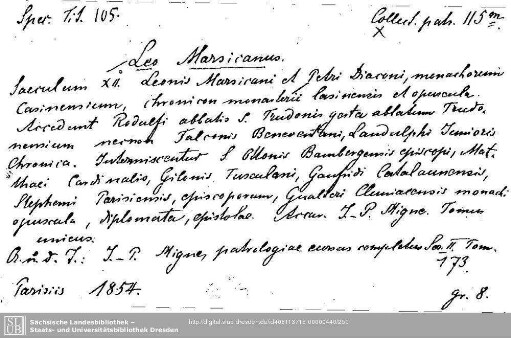 Spec. T. I. 105.
Collect. patr. 115 m.
X
Leo Marsicanus.
Saeculum XII. Leonis Marsicani et Petri Diaconi, monachorum
Casinensium, chronicon monasterii Casinensis et opuscula.
Accedunt Rodulfi abbatis S. Trudonis gesta abbatum Trudo-
nensium necnon Falconis Beneventani, Landulphi Junioris
Chronica. Intermiscentur S. Ottonis Bambergensis episcopi, Mat-
thaei Cardinalis, Gilonis Tusculani, Gaufridi Catalaunensis,
Stephani Parisiensis, episcoporum, Gualteri Cluniacensis monachi
opuscula, diplomata, epistolae. Accur. J.-P. Migne. Tomus
unicus.
A. u. d. T.: J.-P. Migne, patrologiae cursus completus Ser. II. Tom.
173.
Parisiis 1854.
gr. 8.
Sächsische Landesbibliothek –
Staats- und Universitätsbibliothek Dresden